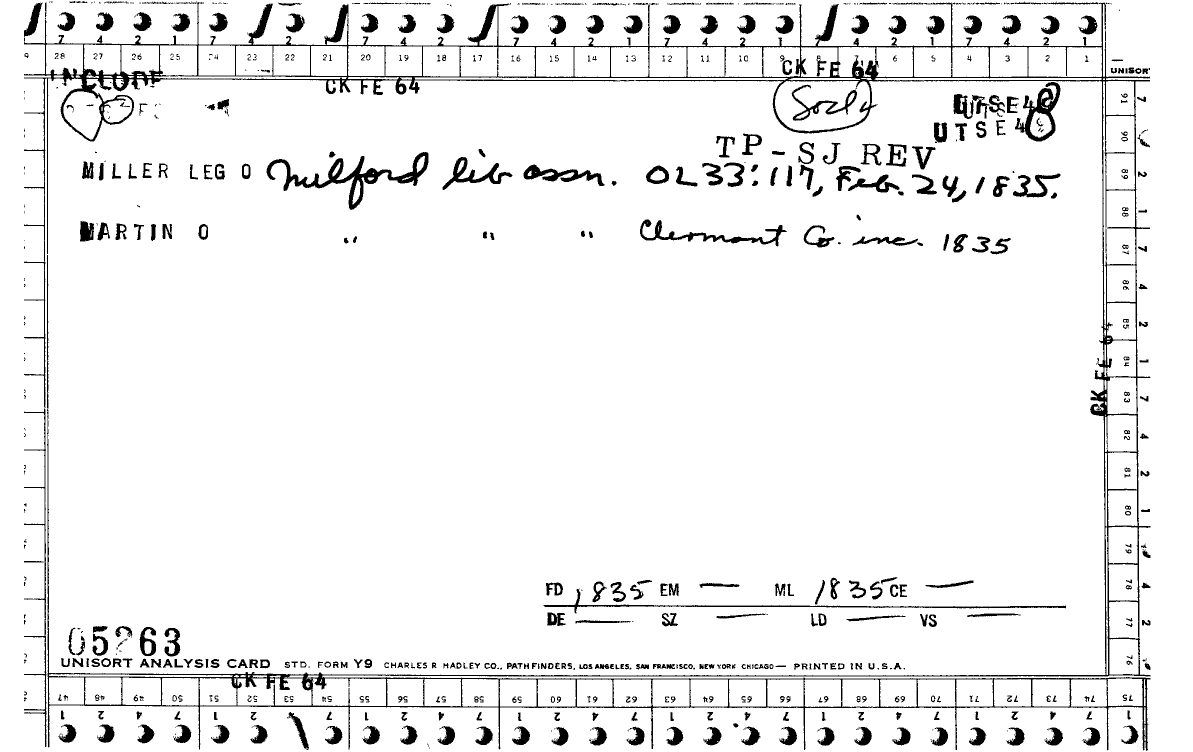 7 4 2 1 7 4 2 1 7 4 2 1 7 4 2 1 7 4 2 1 7 4 2 1 7 4 2 1
28 27 26 25 24 23 22 21 20 19 18 17 16 15 14 13 12 11 10 9 8 7 6 5 4 3 2 1
UNISORT
INCLUDE CK FE 64 CK FE 64
UTSE48
UTSE48
TP-SJ REV
MILLER LEG O Milford lib assn. OL 33:117, Feb. 24, 1835.
MARTIN O " " " Clermont Co. inc. 1835
91 90 89 88 87 86 85 84 83 82 81 80 79 78 77 76
7 2 1 7 4 2 1 7 4 2 1 4 2
CK FE 64
FD 1835 EM — ML 1835 CE —
DE — SZ — LD — VS —
05263
UNISORT ANALYSIS CARD STD. FORM Y9 CHARLES R HADLEY CO., PATHFINDERS, LOS ANGELES, SAN FRANCISCO, NEW YORK CHICAGO — PRINTED IN U.S.A.
CK FE 64
47 48 49 50 51 52 53 54 55 56 57 58 59 60 61 62 63 64 65 66 67 68 69 70 71 72 73 74 75
1 2 4 7 1 2 7 1 2 4 7 1 2 4 7 1 2 4 7 1 2 4 7 1 2 4 7 1